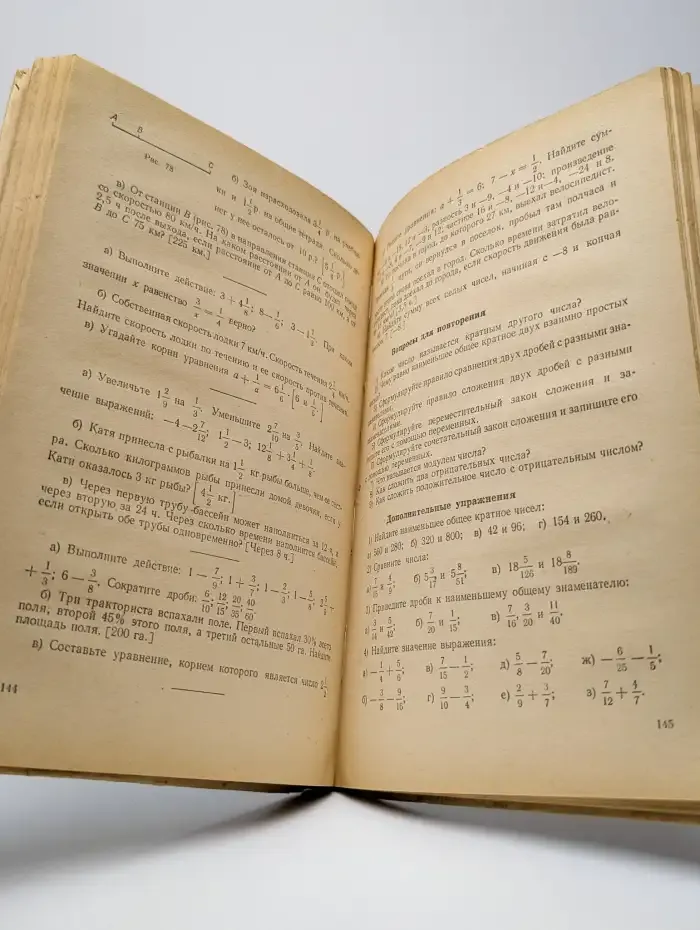 A B C
Рис. 78
б) Зоя израсходовала 4 1/2 р. на учебни-
ки и 1 1/2 р. на общие тетради. Сколько де-
нег у нее осталось от 10 р.?
в) От станции B (рис. 78) в направлении станции C поезд
со скоростью 60 км/ч. На каком расстоянии от A он будет через
2,5 ч после выхода, если расстояние от A до C равно 100 км, а от
B до C 75 км? [225 км.]
а) Выполните действие: 3 + 4 1/8; 8 − 1/6; 3 − 1 1/4. При каком
значении x равенство 3/x = 1/4 верно?
б) Собственная скорость лодки 7 км/ч. Скорость течения 2 1/4 км/ч.
Найдите скорость лодки по течению и ее скорость против течения.
в) Угадайте корни уравнения a + 1/a = 6 1/6. [6 и 1/6.]
а) Увеличьте 1 2/9 на 1/3. Уменьшите 2 7/10 на 3/5. Найдите зна-
чение выражений: −4 − 2 7/12; 1 1/2 − 3; 12 1/8 + 3 1/4 + 1/8.
б) Катя принесла с рыбалки на 1 1/2 кг рыбы больше, чем ее сест-
ра. Сколько килограммов рыбы принесли домой девочки, если у
Кати оказалось 3 кг рыбы? [4 1/2 кг.]
в) Через первую трубу бассейн может наполниться за 12 ч, а
через вторую за 24 ч. Через сколько времени наполнится бассейн,
если открыть обе трубы одновременно? [Через 8 ч.]
а) Выполните действие: 1 − 7/9; 1 + 3/7; 1 − 2/3; 1 − 3/8; 5/6
+ 1/3; 6 − 3/8. Сократите дроби: 6/10; 12/15; 20/35; 40/60.
б) Три тракториста вспахали поле. Первый вспахал 30% всего
поля, второй 45% этого поля, а третий остальные 50 га. Найдите
площадь поля. [200 га.]
в) Составьте уравнение, корнем которого является число 2 1/3.
144
уравнения: a + 1/3 = 6; 7 − x = 1/2. Найдите сум-
разность 3 и −9, −4 и −10; произведение
частное 16 и −8, −12 и −4, −24 и 8.
поселка в город, до которого 27 км, выехал велосипедист.
пути, он вернулся в поселок, пробыл там полчаса и
снова поехал в город. Сколько времени затратил вело-
до города, если скорость движения была рав-
Найдите сумму всех целых чисел, начиная с −8 и кончая
Вопросы для повторения
Какое число называется кратным другого числа?
Чему равно наименьшее общее кратное двух взаимно простых
Сформулируйте правило сравнения двух дробей с разными зна-
менателями.
Сформулируйте правило сложения двух дробей с разными
знаменателями.
Сформулируйте переместительный закон сложения и за-
пишите его с помощью переменных.
Сформулируйте сочетательный закон сложения и запишите его
с помощью переменных.
Что называется модулем числа?
Как сложить два отрицательных числа?
Как сложить положительное число с отрицательным числом?
Дополнительные упражнения
1) Найдите наименьшее общее кратное чисел:
а) 560 и 280; б) 320 и 800; в) 42 и 96; г) 154 и 260.
2) Сравните числа:
а) 7/15 и 4/9; б) 5 3/17 и 5 8/51; в) 18 5/126 и 18 8/189.
3) Приведите дроби к наименьшему общему знаменателю:
а) 3/14 и 5/42; б) 7/20 и 1/15; в) 7/16, 3/20 и 11/40.
4) Найдите значение выражения:
а) −1/4 + 5/6; в) 7/15 − 1/2; д) 5/8 − 7/20; ж) −6/25 − 1/5;
б) −3/8 − 9/16; г) 9/10 − 3/4; е) 2/9 + 3/7; з) 7/12 + 4/7.
145